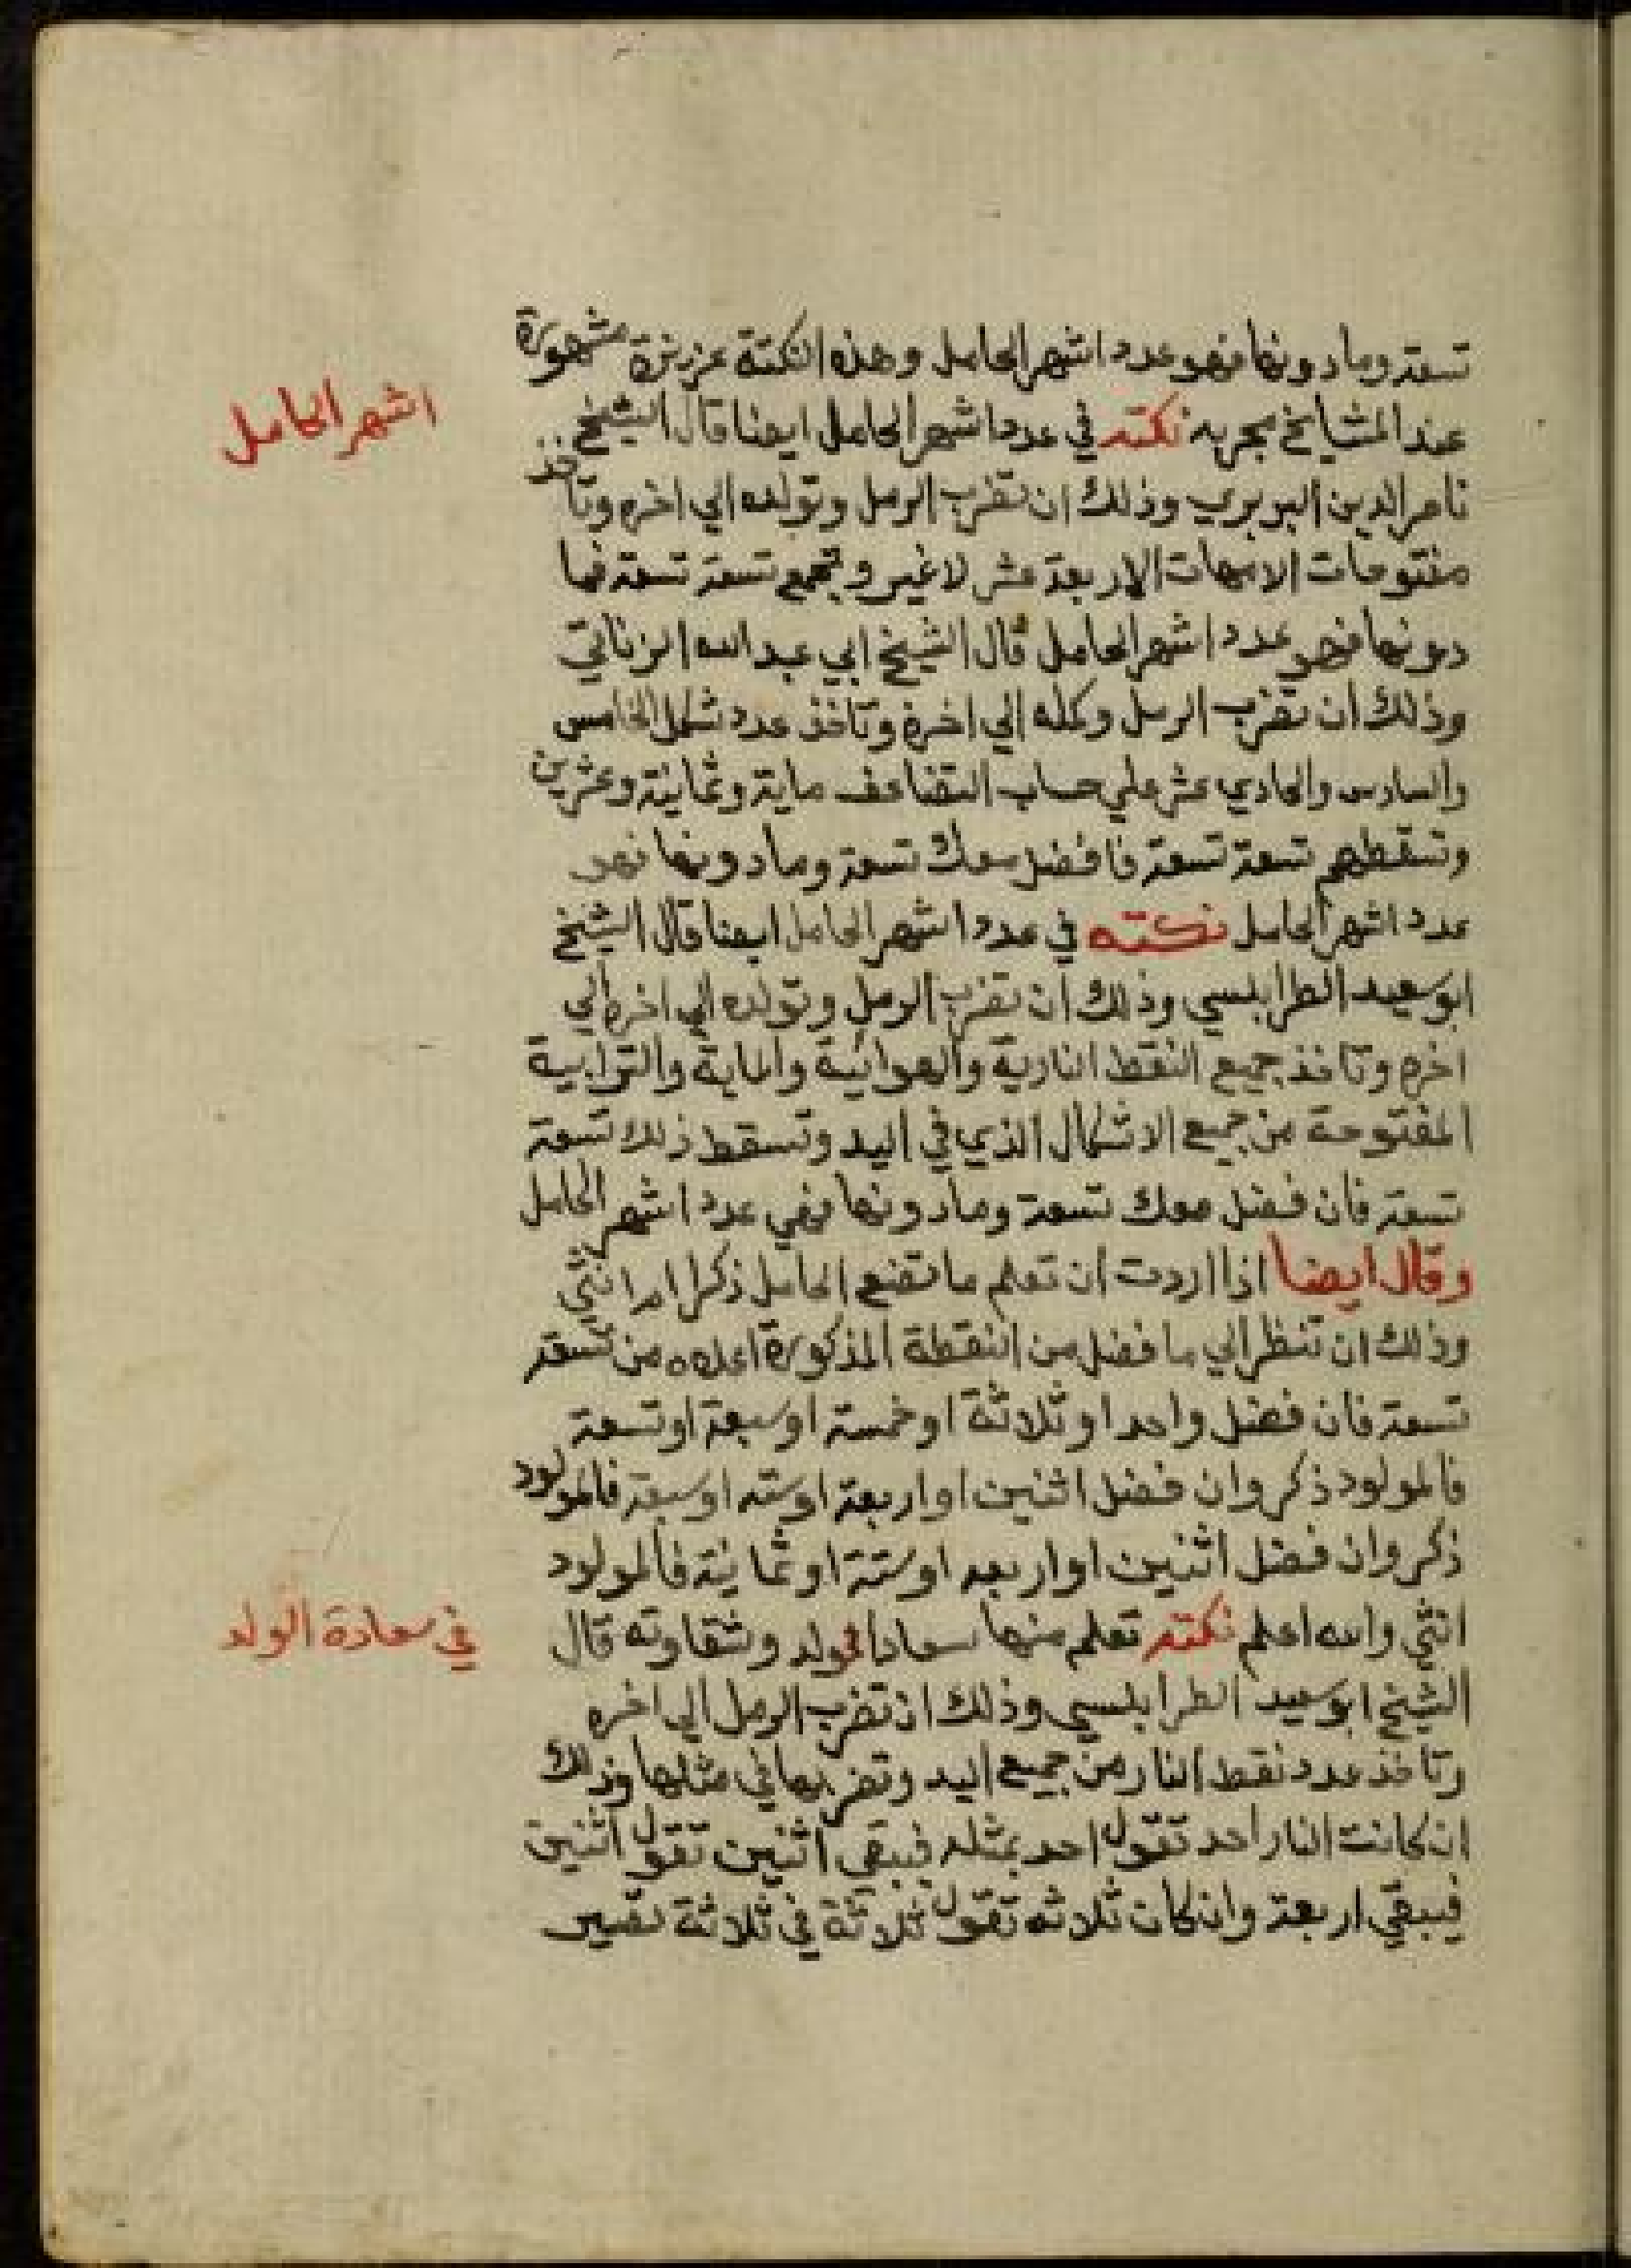 تسعة وما دونها فهو عدد اشهر الحامل وهذه النكتة عزيزة مشهورة
اشهر الحامل
عند المشايخ مجربه نكته في عدد اشهر الحامل ايضا قال الشيخ
ناصر الدين البربري وذلك ان تضرب الرمل وتولده الي اخره وتاخذ
مفتوحات الامهات الاربعة عشر لا غير وتجمع تسعة تسعة فما
دونها فهو عدد اشهر الحامل قال الشيخ ابي عبد الله الزناتي
وذلك ان تضرب الرمل وكمله الي اخره وتاخذ عدد شكل الخامس
والسادس والحادي عشر علي حساب التضاعف ماية وثمانية وعشرين
وتسقطهم تسعة تسعة فا فضل معك تسعة وما دونها فهو
عدد اشهر الحامل نكته في عدد اشهر الحامل ايضا قال الشيخ
ابو سعيد الطرابلسي وذلك ان تضرب الرمل وتولده الي اخره الي
اخره وتاخذ جميع النقط النارية والهوائية والماية والترابية
المفتوحة من جميع الاشكال الذي في اليد وتسقط ذلك تسعة
تسعة فان فضل معك تسعة وما دونها فهي عدد اشهر الحامل
وقال ايضا اذا اردت ان تعلم ما تضع الحامل ذكرا ام انثي
وذلك ان تنظر الي ما فضل من النقطة المذكورة اعلاه من تسعة
تسعة فان فضل واحد او ثلاثة او خمسة او سبعة او تسعة
فالمولود ذكر وان فضل اثنين او اربعة او سته او سبعة فالمولود
ذكر وان فضل اثنين او اربعه او ستة او ثمانية فالمولود
انثي والله اعلم نكته تعلم منها سعادا لمولد وشقاوته قال
في سعادة الولد
الشيخ ابو سعيد الطرابلسي وذلك ان تضرب الرمل الي اخره
وتاخذ عدد نقط النار من جميع اليد وتضربها في مثلها وذلك
ان كانت النار احد تقول احد بمثله فيبقي اثنين تقول اثنين
فيبقي اربعة وان كان ثلاثه تقول ثلاثة في ثلاثة تصير